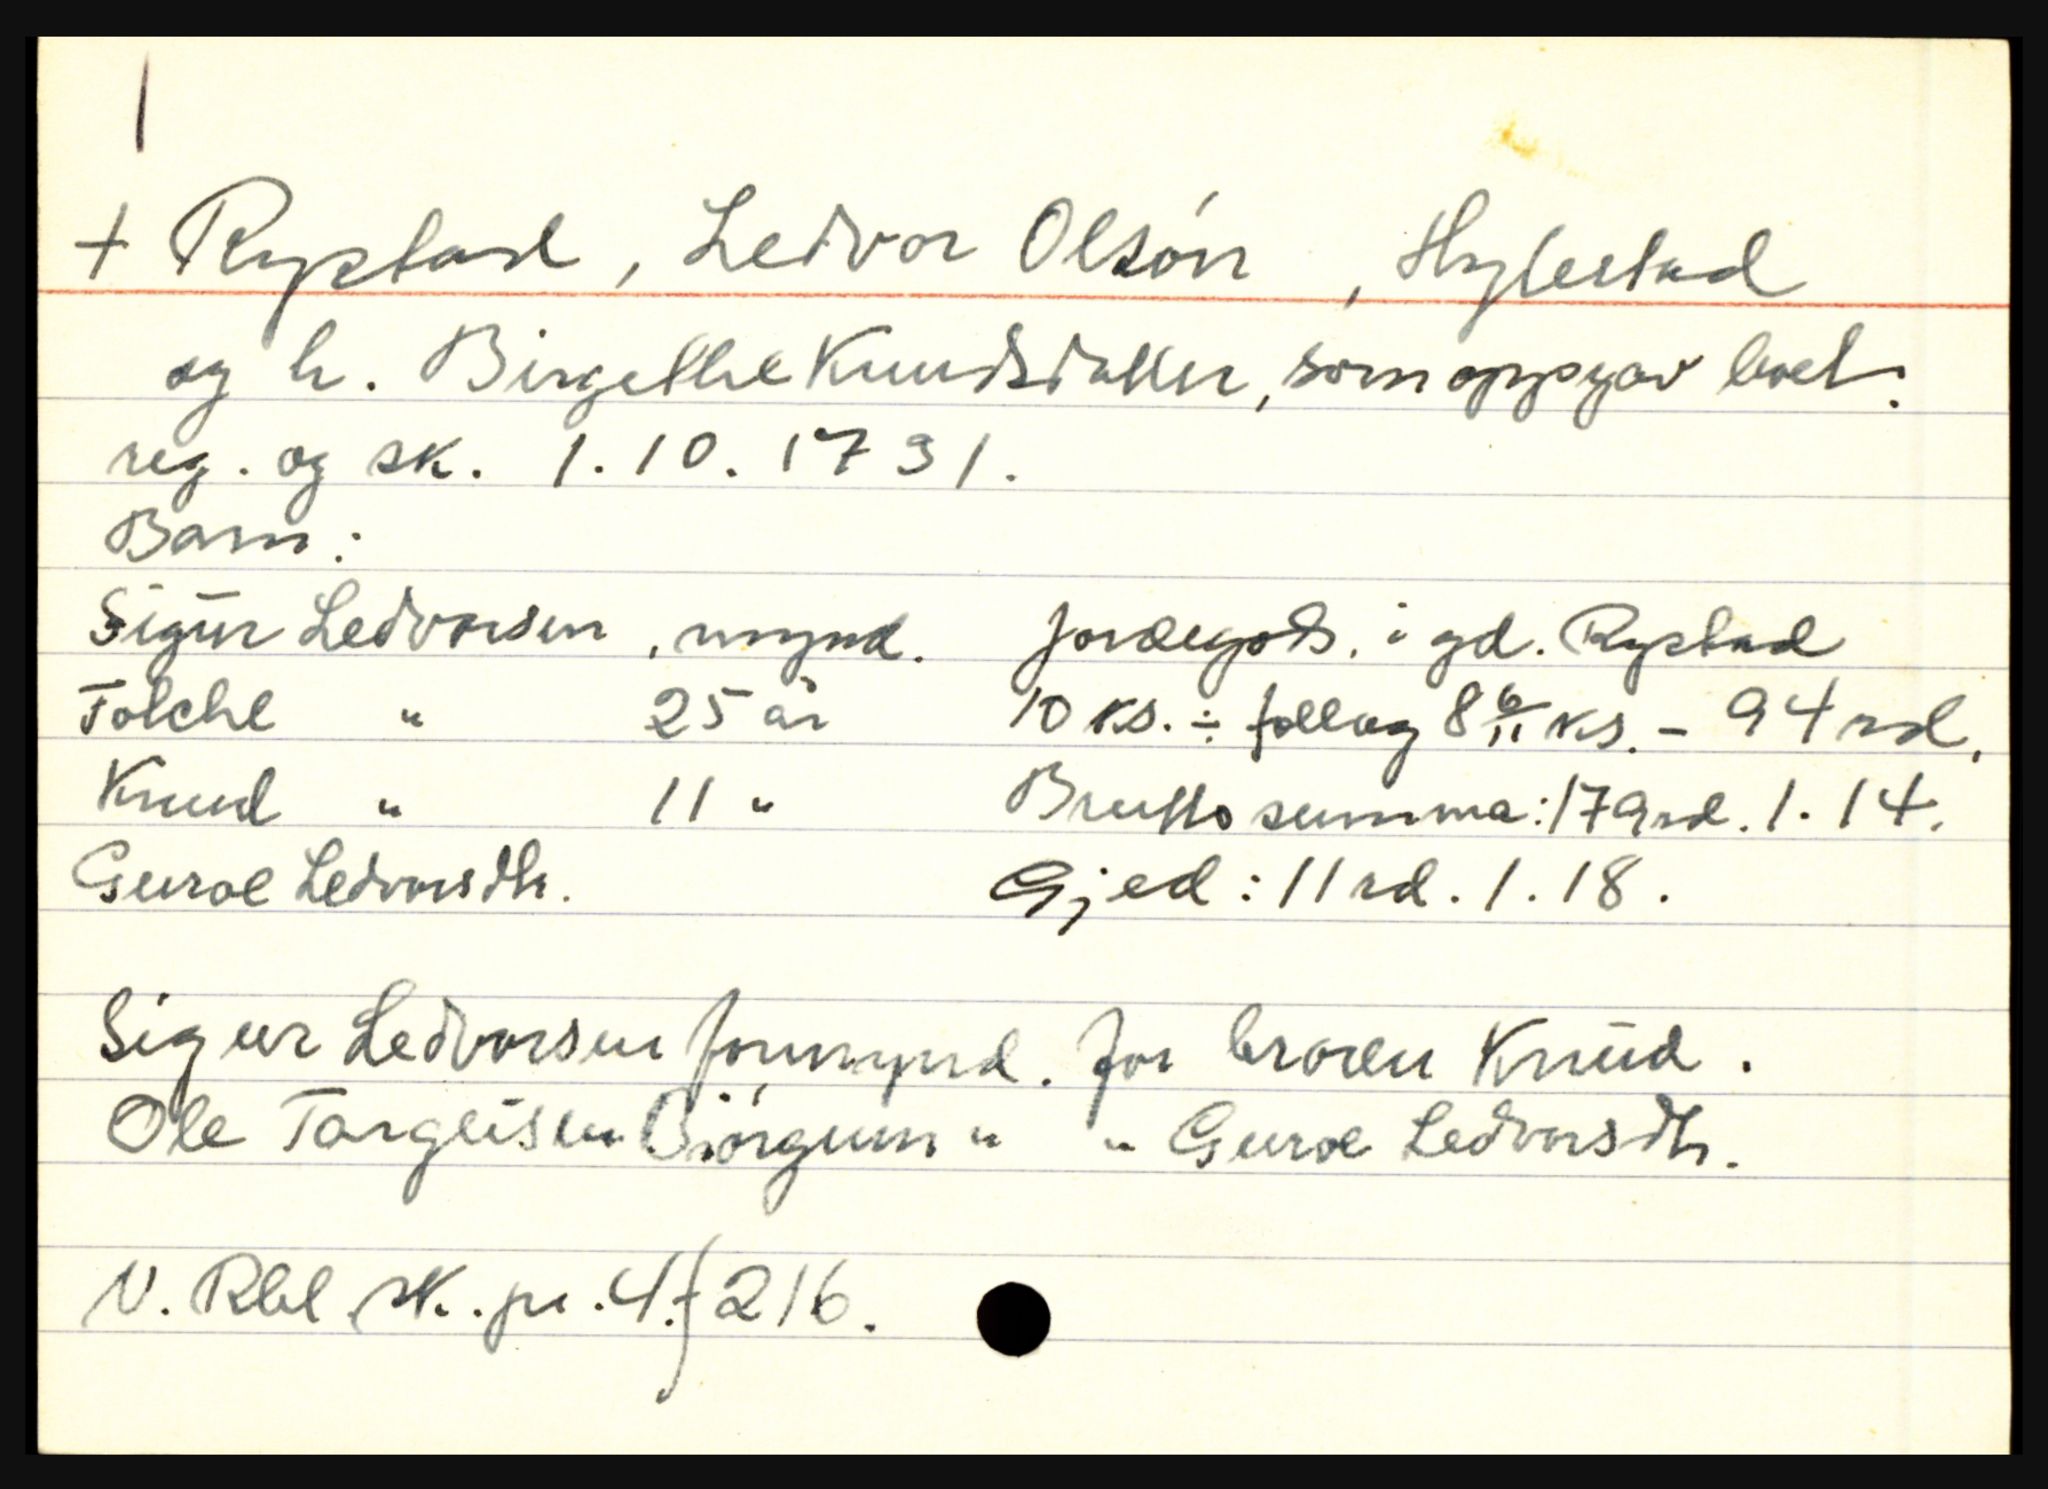 + Rystad, Ledvor Olsón, Hylestad
og h. Birgethe Knudsdatter, som oppgav boet.
reg. og sk. 1.10.1731.
Barn:
Sigur Ledvorsen, mynd. Jordegods. i gd. Rystad
Tolche " 25 år 10 ks. ÷ fellag 8 6/11 ks. - 94 rd.
Knud " 11 " Brutto summa: 179 rd. 1. 14.
Guroe Ledvorsdtr. Gjed: 11 rd. 1. 18.
Sigur Ledvorsen formynd. for broren Knud.
Ole Targeisen Biórgum " " Guroe Ledvorsdtr.
N. Rbl. sk. pr. 4. f 216.